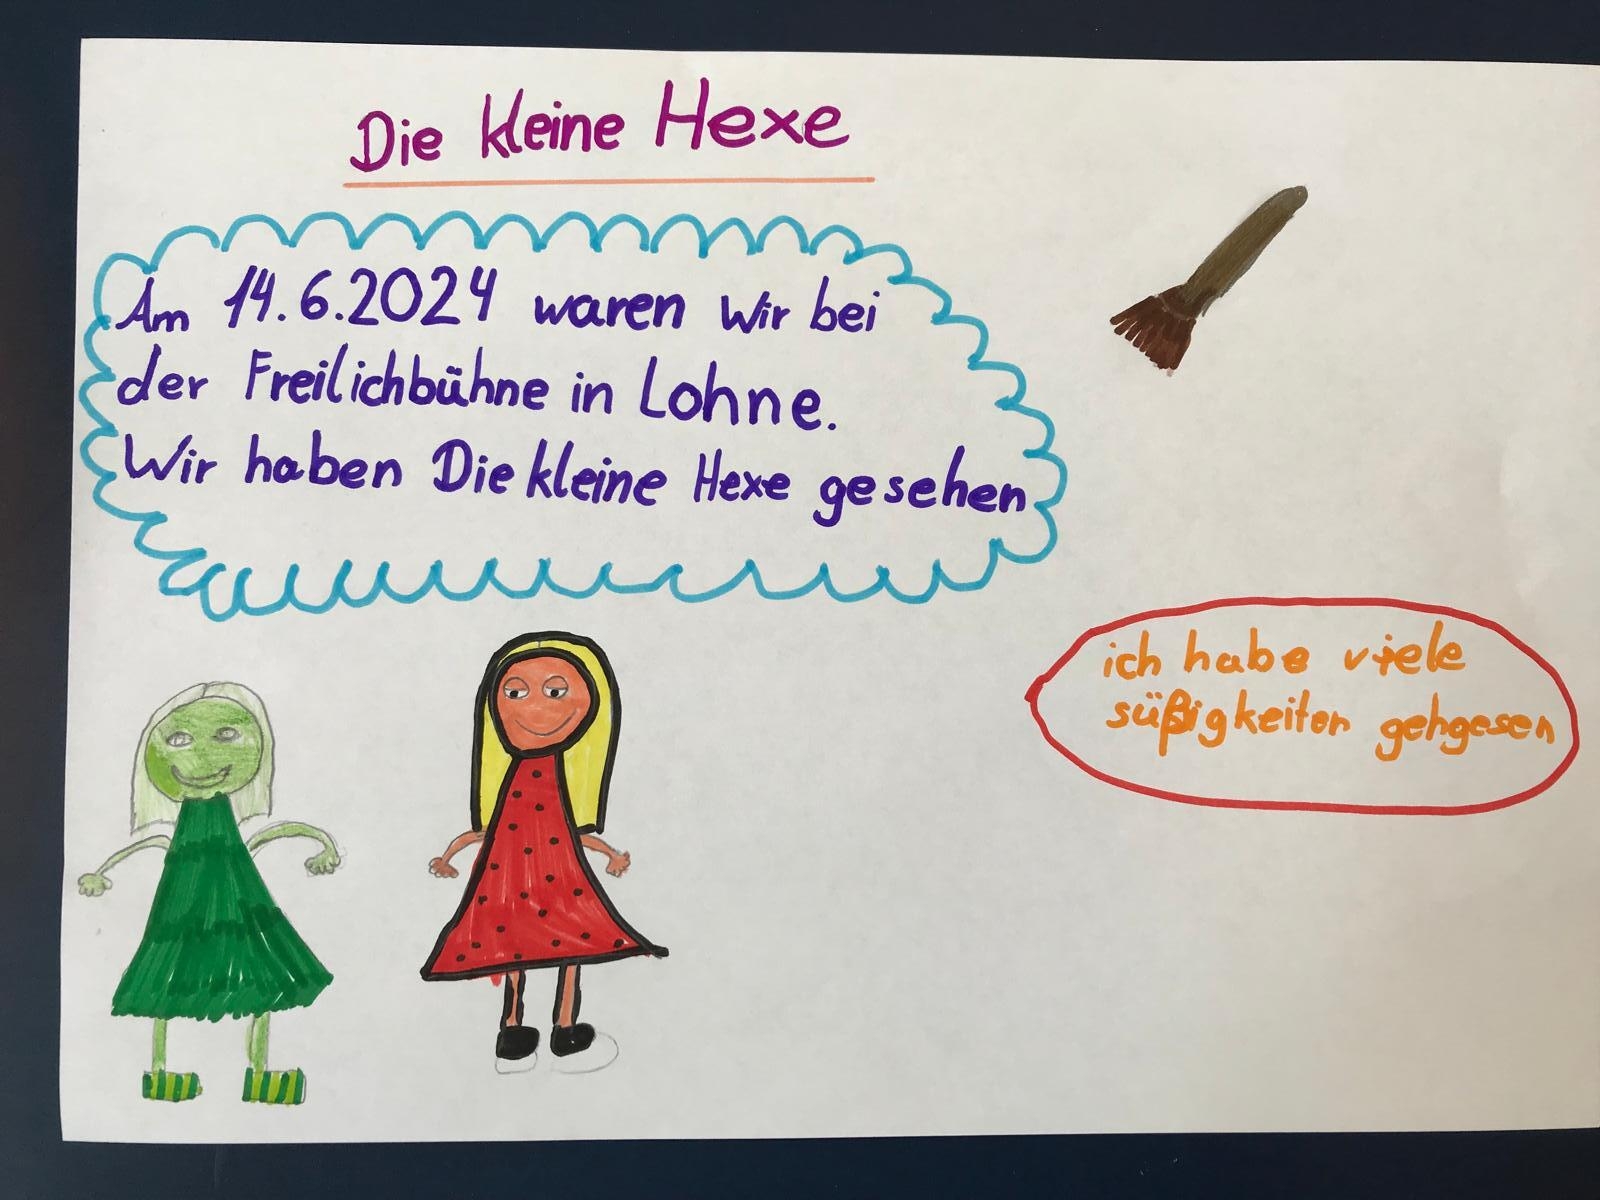 Die kleine Hexe
Am 14.6.2024 waren wir bei
der Freilichbühne in Lohne.
Wir haben Die kleine Hexe gesehen
ich habe viele
süßigkeiten gehgesen